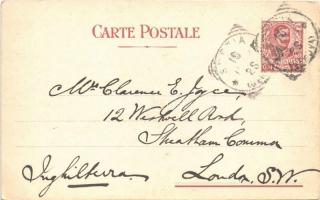 CARTE POSTALE
Mr. Clarence E. Joyce,
12 Road,
Common
Inghilterra London, S.W.